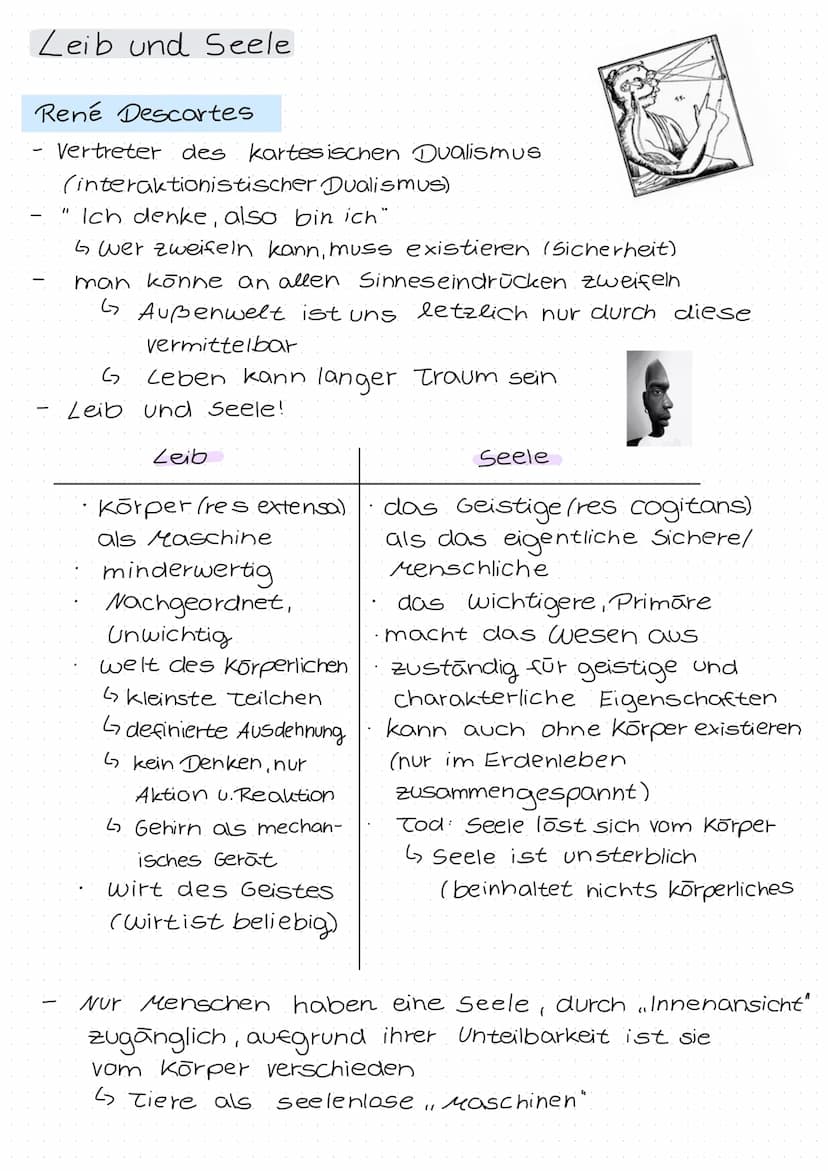 Leib und Seele
René Descartes
- Vertreter des kartesischen Dualismus
(interaktionistischer Dualismus)
- "Ich denke, also bin ich"
↳ wer zweifeln kann, muss existieren (Sicherheit)
- man könne an allen Sinneseindrücken zweifeln
↳ Außenwelt ist uns letzlich nur durch diese
vermittelbar
↳ Leben kann langer Traum sein
- Leib und Seele!
Leib
· Körper (res extensa)
als Maschine
· minderwertig
· Nachgeordnet,
Unwichtig
· Welt des Körperlichen
↳ kleinste Teilchen
↳ definierte Ausdehnung
↳ kein Denken, nur
Aktion u. Reaktion
↳ Gehirn als mechan-
isches Gerät
· Wirt des Geistes
(Wirt ist beliebig)
Seele
· das Geistige (res cogitans)
als das eigentliche Sichere/
Menschliche
· das wichtigere, Primäre
· macht das Wesen aus
· zuständig für geistige und
charakterliche Eigenschaften
· kann auch ohne Körper existieren
(nur im Erdenleben
zusammengespannt)
· Tod: Seele löst sich vom Körper
↳ Seele ist unsterblich
(beinhaltet nichts körperliches
- Nur Menschen haben eine Seele, durch „Innenansicht"
zugänglich, aufgrund ihrer Unteilbarkeit ist sie
vom Körper verschieden
↳ Tiere als seelenlose „Maschinen"